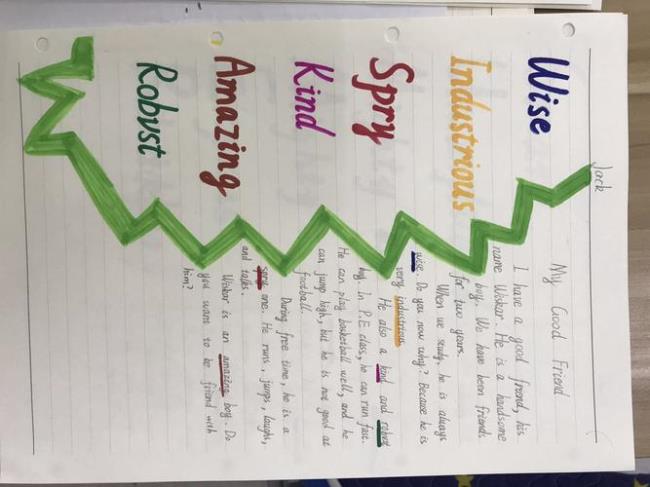 Jack
My Good Friend
Wise
Industrious
Spry
Kind
Amazing
Robvst
I have a good friend, his
name Wiskar. He is a handsome
boy. We have been friends
for two years.
When we study, he is always
wise. Do you now why? Because he is
very industrious.
He also a kind and robust
boy. In P.E class, he can run fast.
He can play basketball well, and he
can jump high, but he is not good at
football.
During free time, he is a
spry one. He runs, jumps, laughs,
and talks.
Wiskar is an amazing boy. Do
you want to be friend with
him?